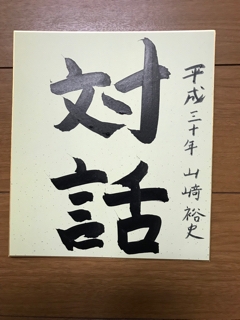 対話
平成三十年 山﨑裕史